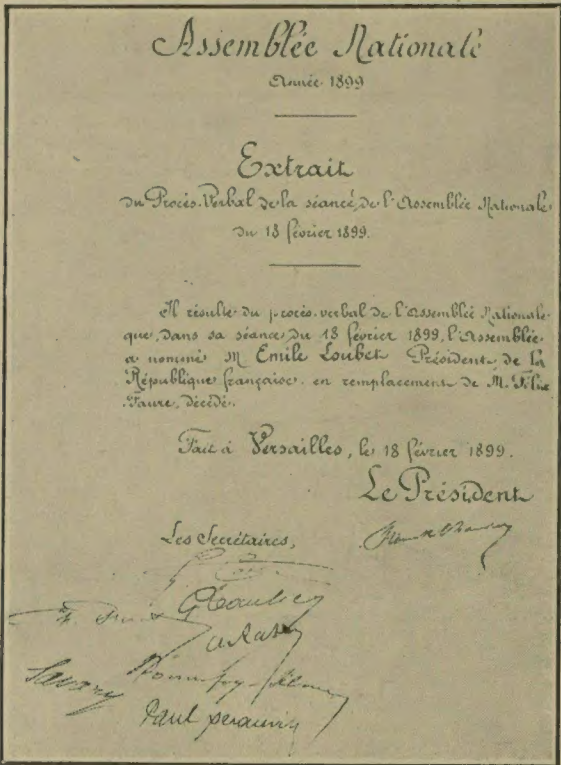 Assemblée Nationale
Année 1899
Extrait
du Procès-Verbal de la séance de l'Assemblée Nationale
du 18 février 1899.
Il résulte du procès-verbal de l'Assemblée Nationale
que, dans sa séance du 18 février 1899, l'Assemblée
a nommé M Emile Loubet Président de la
République française en remplacement de M. Félix
Faure, décédé.
Fait à Versailles, le 18 février 1899.
Le Président
Les Secrétaires,
Savary
Paul